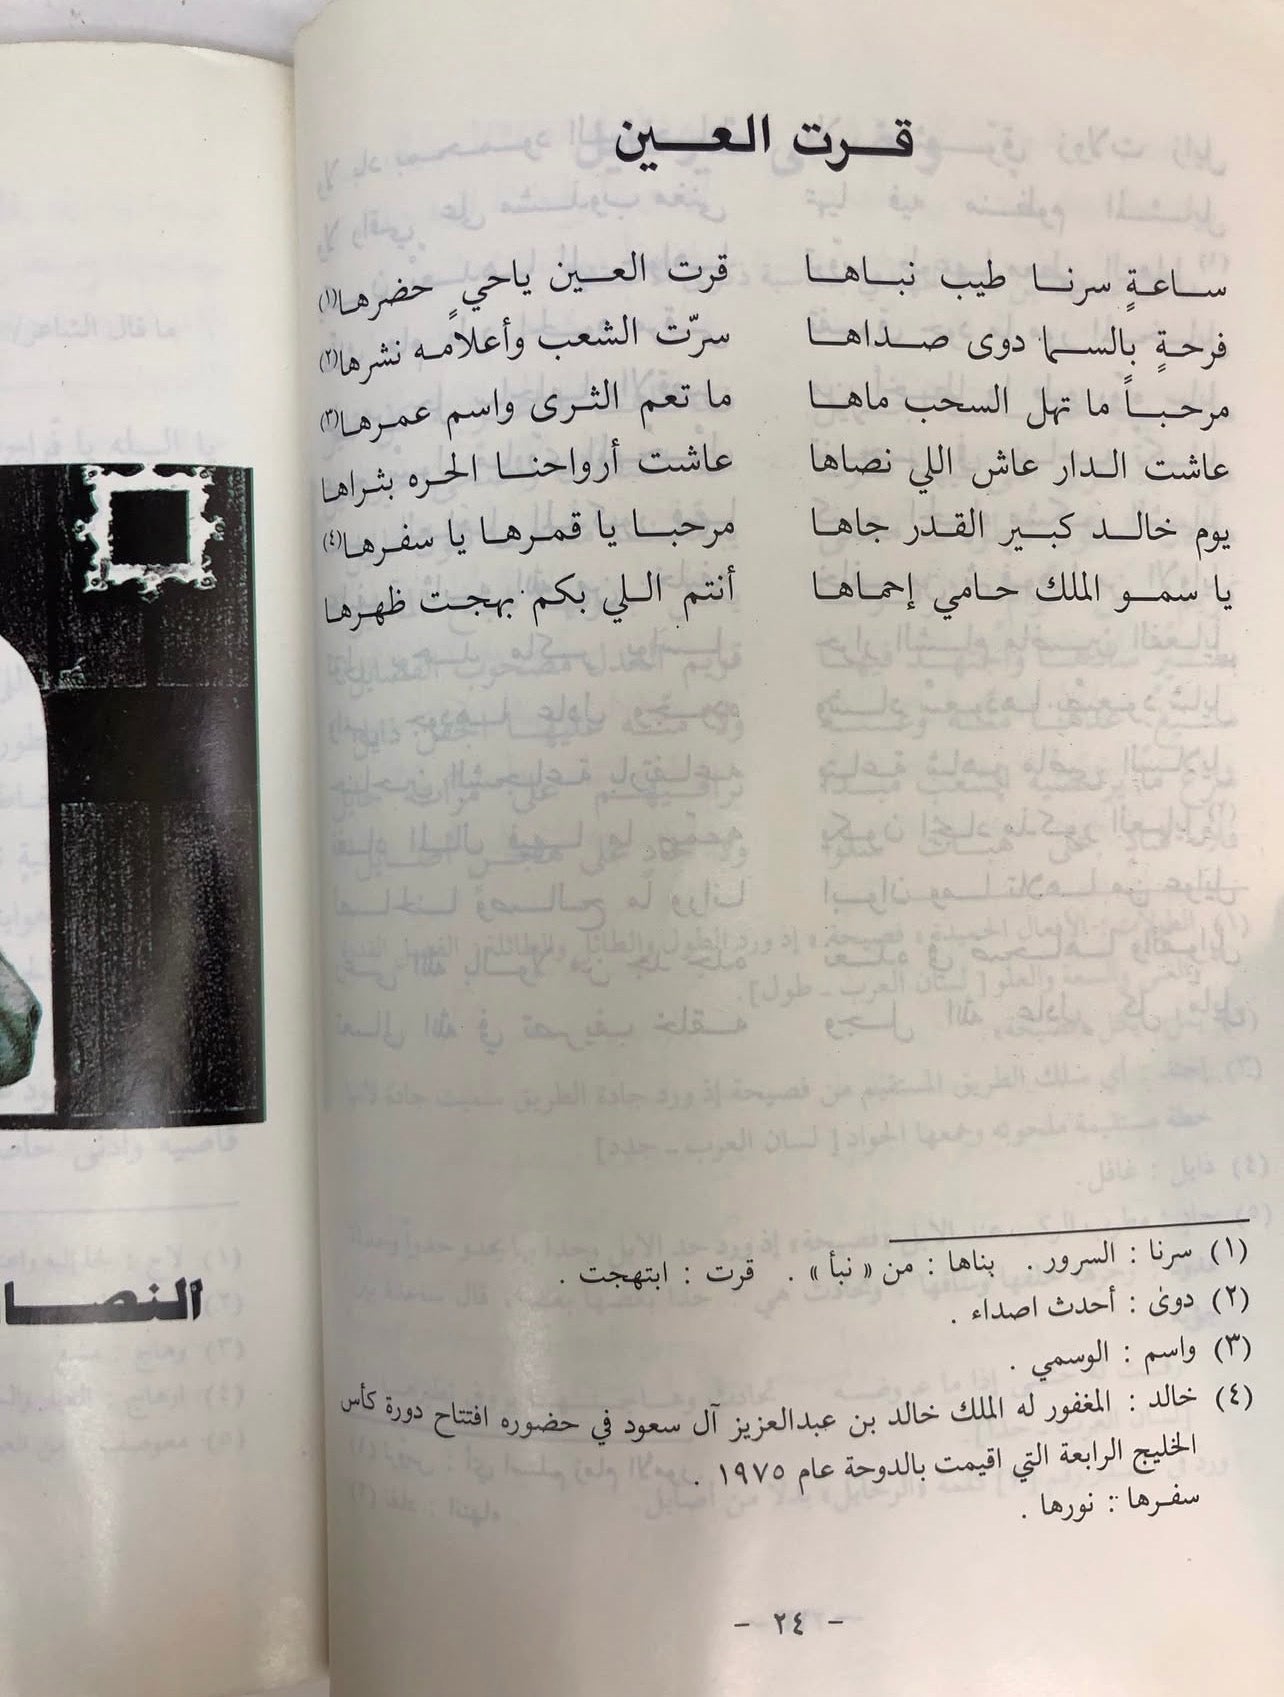 قرت العين
ساعةٍ سرنا طيب نباها قرت العين ياحيٍ حضرها(١)
فرحةٍ بالسما دوى صداها سرّت الشعب وأعلامه نشرها(٢)
مرحباً ما تهل السحب ماها ما تعم الثرى واسم عمرها(٣)
عاشت الدار عاش اللي نصاها عاشت أرواحنا الحره بثراها
يوم خالد كبير القدر جاها مرحبا يا قمرها يا سفرها(٤)
يا سمو الملك حامي إحماها أنتم اللي بكم بهجت ظهرها
(١) سرنا : السرور . بناها : من « نبأ » . قرت : ابتهجت .
(٢) دوى : أحدث اصداء .
(٣) واسم : الوسمي .
(٤) خالد : المغفور له الملك خالد بن عبدالعزيز آل سعود في حضوره افتتاح دورة كأس
الخليج الرابعة التي اقيمت بالدوحة عام ١٩٧٥ .
سفرها : نورها .
- ٢٤ -
النصا